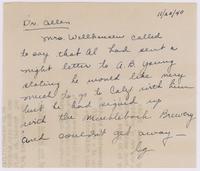 11/20/40
Dr. Allen
Mrs. Wellhausen called
to say that Al had sent a
night letter to A.B. Young
stating he would like very
much to go to Calif with him
but he had signed up
with the Muehlebach Brewery
and couldn't get away —